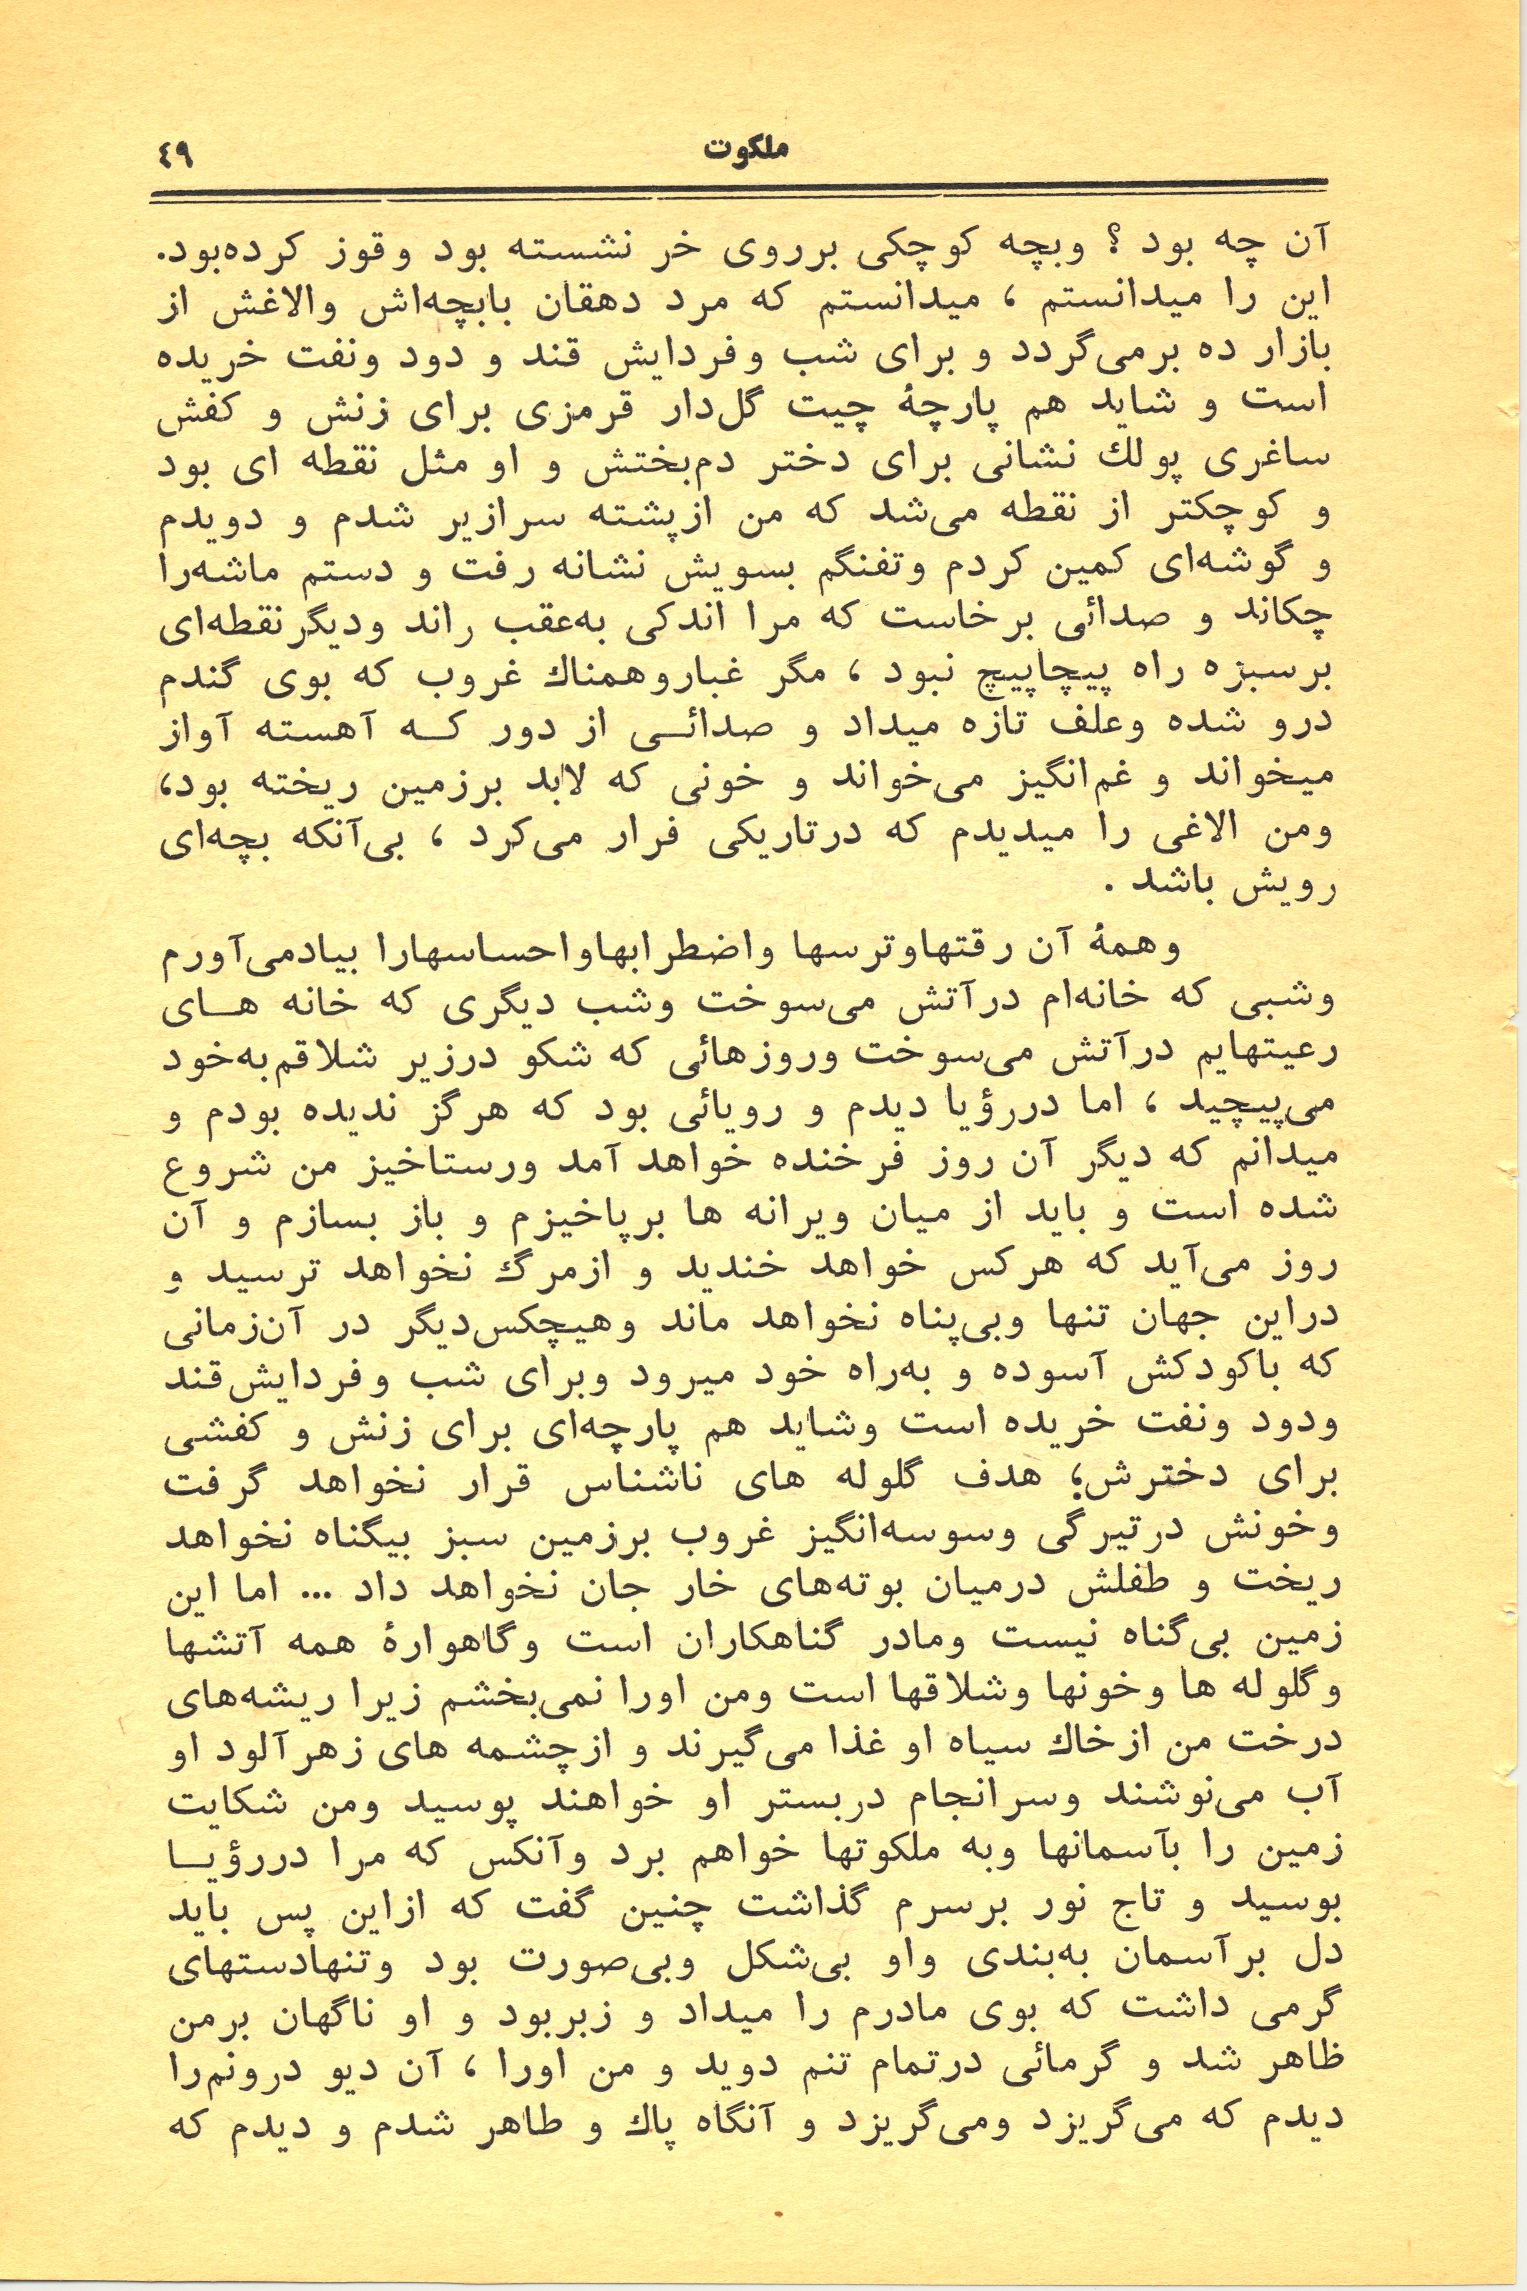 ملکوت
٤٩
آن چه بود ؟ وبچه کوچکی برروی خر نشسته بود وقوز کرده‌بود.
این را میدانستم ، میدانستم که مرد دهقان بابچه‌اش والاغش از
بازار ده برمی‌گردد و برای شب وفردایش قند و دود ونفت خریده
است و شاید هم پارچهٔ چیت گل‌دار قرمزی برای زنش و کفش
ساغری پولك نشانی برای دختر دم‌بختش و او مثل نقطه ای بود
و کوچکتر از نقطه می‌شد که من ازپشته سرازیر شدم و دویدم
و گوشه‌ای کمین کردم وتفنگم بسویش نشانه رفت و دستم ماشه‌را
چکاند و صدائی برخاست که مرا اندکی به‌عقب راند ودیگرنقطه‌ای
برسبزه راه پیچاپیچ نبود ، مگر غباروهمناك غروب که بوی گندم
درو شده وعلف تازه میداد و صدائـی از دور کـه آهسته آواز
میخواند و غم‌انگیز می‌خواند و خونی که لابد برزمین ریخته بود،
ومن الاغی را میدیدم که درتاریکی فرار می‌کرد ، بی‌آنکه بچه‌ای
رویش باشد .
وهمهٔ آن رقتهاوترسها واضطرابهاواحساسهارا بیادمی‌آورم
وشبی که خانه‌ام درآتش می‌سوخت وشب دیگری که خانه هـای
رعیتهایم درآتش می‌سوخت وروزهائی که شکو درزیر شلاقم‌به‌خود
می‌پیچید ، اما دررؤیا دیدم و رویائی بود که هرگز ندیده بودم و
میدانم که دیگر آن روز فرخنده خواهد آمد ورستاخیز من شروع
شده است و باید از میان ویرانه ها برپاخیزم و باز بسازم و آن
روز می‌آید که هرکس خواهد خندید و ازمرگ نخواهد ترسید و
دراین جهان تنها وبی‌پناه نخواهد ماند وهیچکس‌دیگر در آن‌زمانی
که باکودکش آسوده و به‌راه خود میرود وبرای شب وفردایش‌قند
ودود ونفت خریده است وشاید هم پارچه‌ای برای زنش و کفشی
برای دخترش؛ هدف گلوله های ناشناس قرار نخواهد گرفت
وخونش درتیرگی وسوسه‌انگیز غروب برزمین سبز بیگناه نخواهد
ریخت و طفلش درمیان بوته‌های خار جان نخواهد داد ... اما این
زمین بی‌گناه نیست ومادر گناهکاران است وگاهوارهٔ همه آتشها
وگلوله ها وخونها وشلاقها است ومن اورا نمی‌بخشم زیرا ریشه‌های
درخت من ازخاك سیاه او غذا می‌گیرند و ازچشمه های زهرآلود او
آب می‌نوشند وسرانجام دربستر او خواهند پوسید ومن شکایت
زمین را بآسمانها وبه ملکوتها خواهم برد وآنکس که مرا دررؤیـا
بوسید و تاج نور برسرم گذاشت چنین گفت که ازاین پس باید
دل برآسمان به‌بندی واو بی‌شکل وبی‌صورت بود وتنهادستهای
گرمی داشت که بوی مادرم را میداد و زبربود و او ناگهان برمن
ظاهر شد و گرمائی درتمام تنم دوید و من اورا ، آن دیو درونم‌را
دیدم که می‌گریزد ومی‌گریزد و آنگاه پاك و طاهر شدم و دیدم که